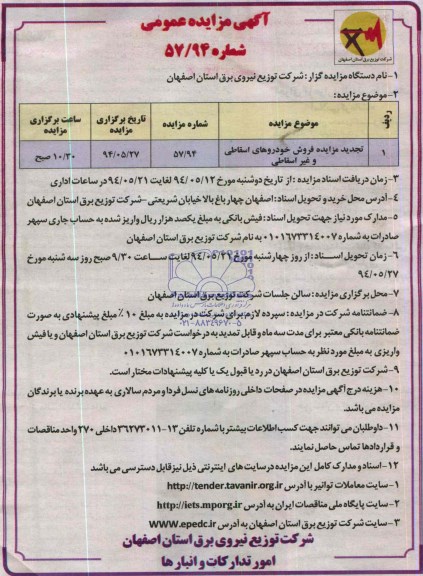 آگهی مزایده عمومی
شماره ۵۷/۹۴
شرکت توزیع برق استان اصفهان
۱- نام دستگاه مزایده گزار : شرکت توزیع نیروی برق استان اصفهان
۲- موضوع مزایده :
ردیف موضوع مزایده شماره مزایده تاریخ برگزاری مزایده ساعت برگزاری مزایده
۱ تجدید مزایده فروش خودروهای اسقاطی و غیر اسقاطی ۵۷/۹۴ ۹۴/۰۵/۲۷ ۱۰/۳۰ صبح
۳- زمان دریافت اسناد مزایده : از تاریخ دوشنبه مورخ ۹۴/۰۵/۱۲ لغایت ۹۴/۰۵/۲۱ در ساعات اداری
۴- آدرس محل خرید و تحویل اسناد : اصفهان چهارباغ بالا خیابان شریعتی - شرکت توزیع برق استان اصفهان
۵- مدارک مورد نیاز جهت تحویل اسناد : فیش بانکی به مبلغ یکصد هزار ریال واریز شده به حساب جاری سپهر
صادرات به شماره ۰۱۰۱۶۷۳۳۱۴۰۰۷ به نام شرکت توزیع برق استان اصفهان
۶- زمان تحویل اسناد : از روز چهارشنبه مورخ ۹۴/۰۵/۲۱ لغایت ساعت ۹/۳۰ صبح روز سه شنبه مورخ
۹۴/۰۵/۲۷
۷- محل برگزاری مزایده : سالن جلسات شرکت توزیع برق استان اصفهان
۸- ضمانتنامه شرکت در مزایده : سپرده لازم برای شرکت در مزایده به مبلغ ۱۰٪ مبلغ پیشنهادی به صورت
ضمانتنامه بانکی معتبر برای مدت سه ماه و قابل تمدید به درخواست شرکت توزیع برق استان اصفهان و یا فیش
واریزی به مبلغ مورد نظر به حساب سپهر صادرات به شماره ۰۱۰۱۶۷۳۳۱۴۰۰۷
۰۲۱-۸۸۳۴۹۶۷۰-۵
۹- شرکت توزیع برق استان اصفهان در رد یا قبول یک یا کلیه پیشنهادات مختار است.
۱۰- هزینه درج آگهی مزایده در صفحات داخلی روزنامه های نسل فردا و مردم سالاری به عهده برنده یا برندگان
مزایده می باشد.
۱۱- داوطلبان می توانند جهت کسب اطلاعات بیشتر با شماره تلفن ۱۳-۳۶۲۷۳۰۱۱ داخلی ۲۷۰ واحد مناقصات
و قراردادها تماس حاصل نمایند.
۱۲- اسناد و مدارک کامل این مزایده در سایت های اینترنتی ذیل نیز قابل دسترسی می باشد
۱- سایت معاملات توانیر با آدرس http://tender.tavanir.org.ir
۲- سایت پایگاه ملی مناقصات ایران به آدرس http://iets.mporg.ir
۳- سایت شرکت توزیع برق استان اصفهان به آدرس www.epedc.ir
شرکت توزیع نیروی برق استان اصفهان
امور تدارکات و انبارها